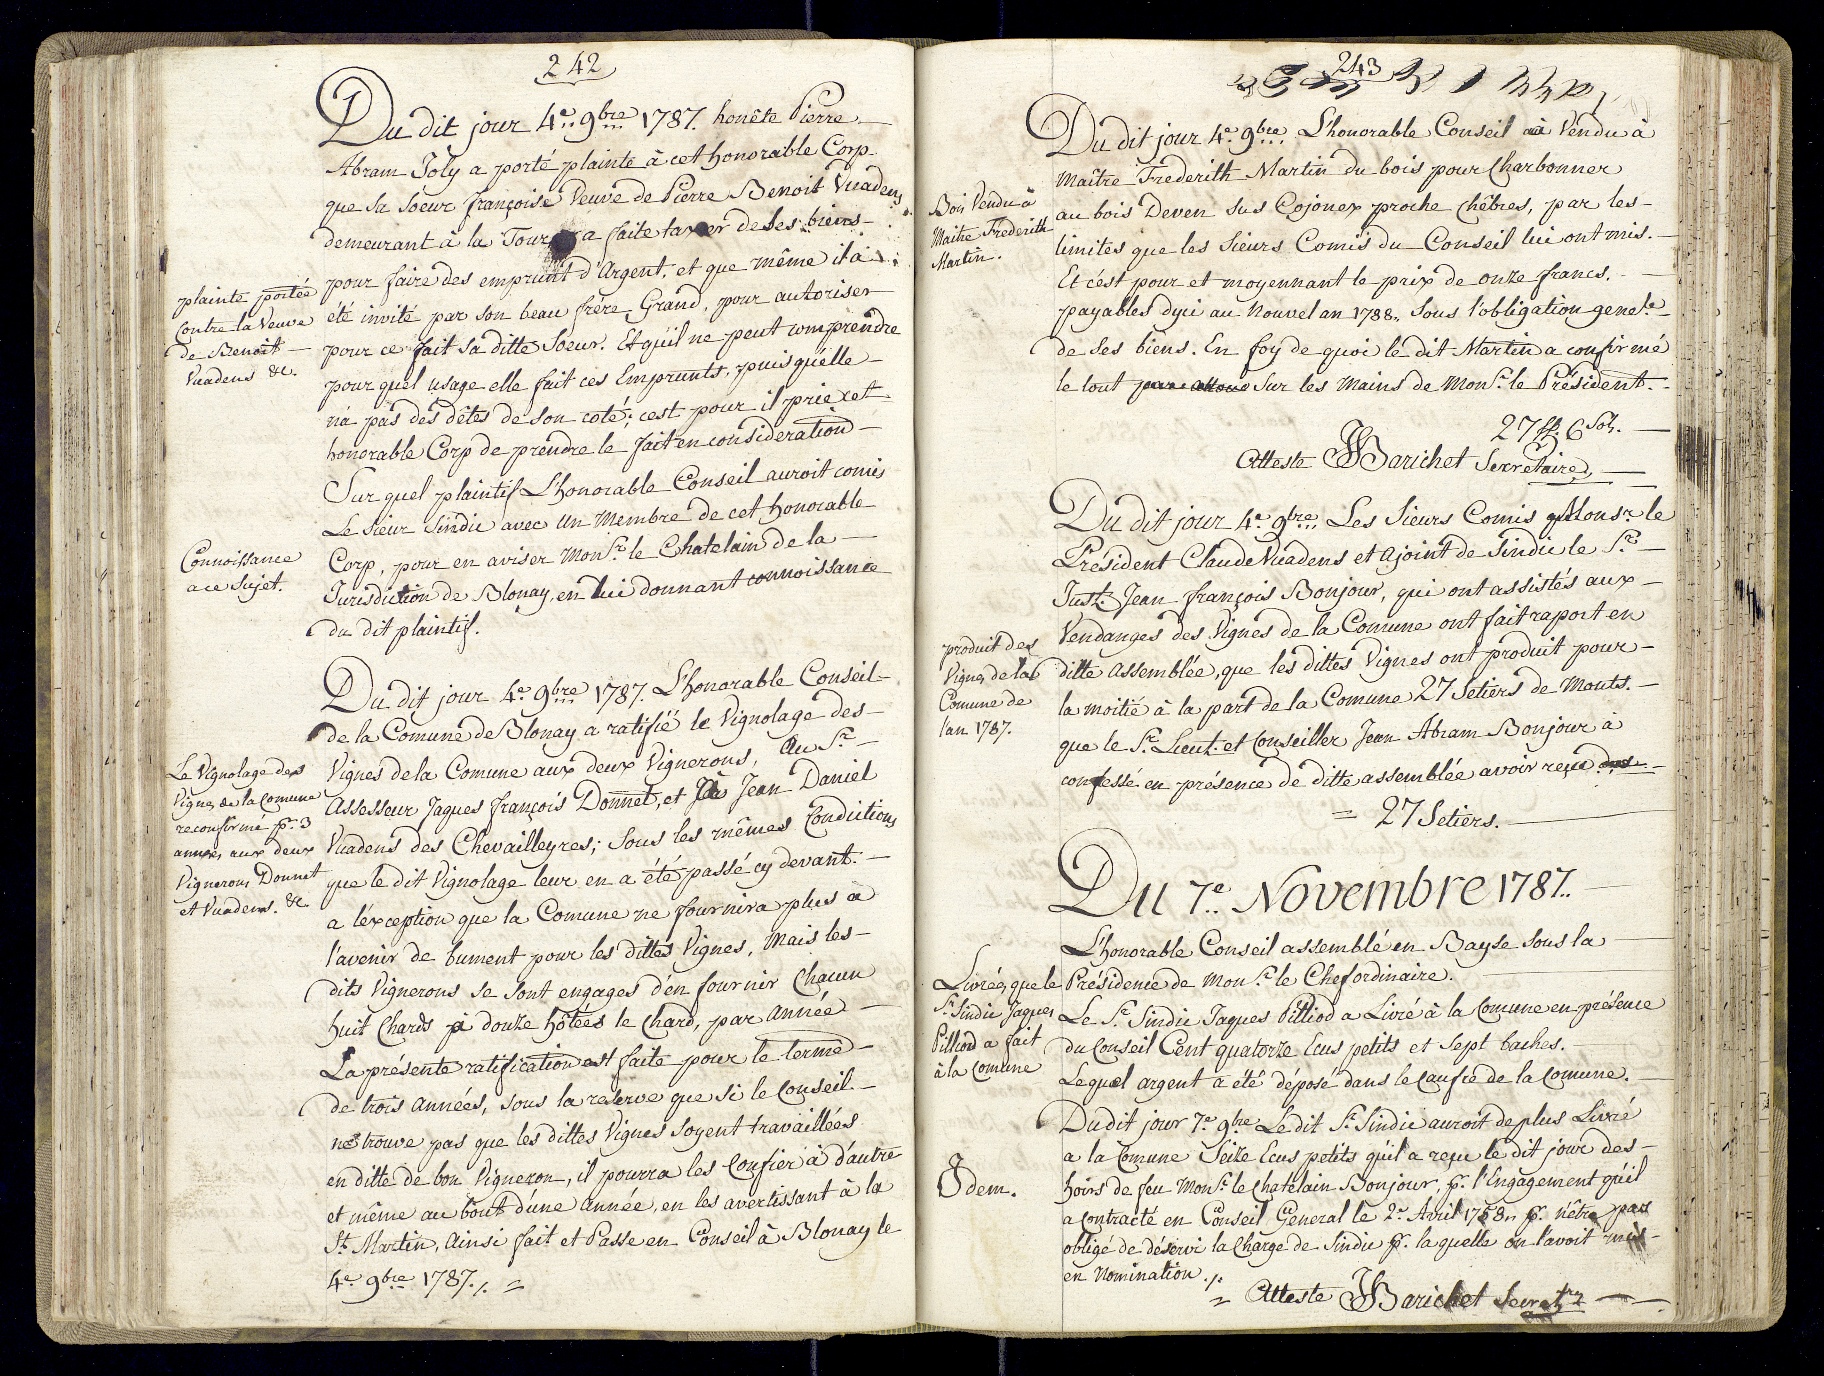 242
Du dit jour 4.e 9bre 1787. honête Pierre
Abram Joly a porté plainte à cet honorable Corp
que sa soeur françoise Veuve de Pierre Benoit Vuadens
demeurant à la Tour a faite taxer de ses biens
pour faire des emprunt d'Argent, et que même il a
plainte portée
contre la Veuve
de Benoit
Vuadens &c.
été invité par son beau frére Grand, pour autoriser
pour ce fait sa ditte soeur. Et qu'il ne peut comprendre
pour quel usage elle fait ces Emprunts, puis qu'elle
n'a pas des dêtes de son coté; cest pour il prie cet
honorable Corp de prendre le fait en consideration
Sur quel plaintif L'honorable Conseil auroit comis
Le Sieur Sindic avec un Membre de cet honorable
Corp, pour en aviser Mons.r le Chatelain de la
Connoissance
a ce sujet.
Jurisdiction de Blonay, en lui donnant connoissance
du dit plaintif.
Du dit jour 4.e 9bre 1787. L'honorable Conseil
de la Comune de Blonay a ratifié le Vignolage des
Vignes de la Comune aux deux Vignerons, Au S.r
Le Vignolage des
Vignes de la Comune
reconfirmé pr. 3
années aux deux
Vignerons Donnet
et Vuadens. &c.
Assesseur Jaques françois Donnet, et à Jean Daniel
Vuadens des Chevailleyres; sous les mêmes Conditions
que le dit Vignolage leur en a été passé cy devant.
a l'éxception que la Comune ne fournira plus a
l'avenir de fument pour les dittes Vignes, Mais les
dits Vignerons se sont engages d'én fournir Chacun
huit Chards à douze hôtées le Chard, par Année
La présente ratification est faite pour le terme
de trois Années, sous la reserve que si le Conseil
ne trouve pas que les dittes Vignes soyent travaillées
en ditte de bon Vigneron, il pourra les Confier à d'autre
et même au bout d'une Année, en les avertissant à la
St. Martin, Ainsi fait et Passe en Conseil à Blonay le
4.e 9bre 1787.
243
Du dit jour 4.e 9bre L'honorable Conseil a Vendu à
Maître Frederith Martin du bois pour Charbonner
Bois Vendu à
Maitre Frederith
Martin.
au bois Deven sus Cojonex proche Chêbres, par les
limites que les Sieurs Comis du Conseil lui ont mis.
Et c'ést pour et moyennant le prix de onze francs,
payables dyci au Nouvel an 1788. sous l'obligation genele
de ses biens. En foy de quoi le dit Martin a confirmé
le tout sur les Mains de Monsr. le Président.
27 ff. 6 Sols.
Atteste Barichet Secretaire,
Du dit jour 4.e 9bre Les Sieurs Comis Monsr. le
Président Claude Vuadens et ajoint de Sindic le S.r
Just. Jean françois Bonjour, qui ont assistés aux
Vendanges des Vignes de la Comune ont fait raport en
produit des
Vignes de la
Comune de
l'an 1787.
ditte assemblée, que les dittes Vignes ont produit pour
la moitié à la part de la Comune 27 Setiers de Mouts.
que le S.r Lieut. et Conseiller Jean Abram Bonjour à
confessé en présence de ditte assemblée avoir reçu
= 27 Setiers.
Du 7.e Novembre 1787.
L'honorable Conseil assemblé en Bayse sous la
Présidence de Mons.r le Chef ordinaire.
Livrées, que le
Sr. Sindic Jaques
Pilliod a fait
à la Comune
Le S.r Sindic Jaques Pilliod a Livré à la Comune en présence
du Conseil Cent quatorze Ecus petits et Sept baches.
Lequel argent a été déposé dans le Caufre de la Comune.
Du dit jour 7.e 9bre Le dit S.r Sindic auroit de plus Livré
a la Comune Seize Ecus petits qu'il a reçu le dit jour des
Idem.
hoirs de feu Mons.r le Chatelain Bonjour, pr. l'Engagement qu'il
a contracté en Conseil General le 2.e Avril 1758. pr. n'être pas
obligé de déservi la Charge de Sindic pr. la quelle on l'avoit mis
en Nomination.
= Atteste Barichet Secretre